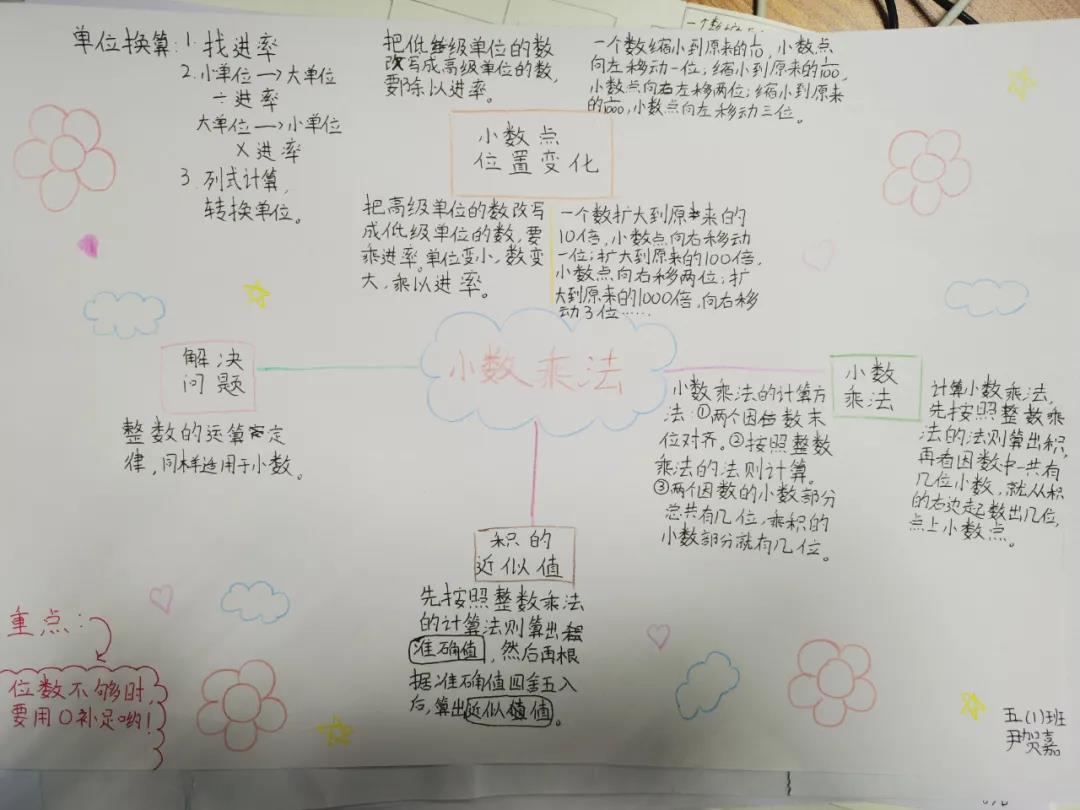 单位换算：1.找进率
2.小单位→大单位
÷进率
大单位→小单位
×进率
3.列式计算，
转换单位。
把低级单位的数
改写成高级单位的数，
要除以进率。
一个数缩小到原来的1/10，小数点
向左移动一位；缩小到原来的1/100，
小数点向左移两位；缩小到原来
的1/1000，小数点向左移动三位。
小数点
位置变化
把高级单位的数改写
成低级单位的数，要
乘进率。单位变小，数变
大，乘以进率。
一个数扩大到原来的
10倍，小数点向右移动
一位；扩大到原来的100倍，
小数点向右移两位；扩
大到原来的1000倍，向右移
动3位……
小数乘法
解决
问题
整数的运算定
律，同样适用于小数。
小数
乘法
小数乘法的计算方
法：①两个因数末
位对齐。②按照整数
乘法的法则计算。
③两个因数的小数部分
总共有几位，乘积的
小数部分就有几位。
计算小数乘法，
先按照整数乘
法的法则算出积，
再看因数中一共有
几位小数，就从积
的右边起数出几位，
点上小数点。
积的
近似值
先按照整数乘法
的计算法则算出
准确值，然后再根
据准确值四舍五入
后，算出近似值。
重点：
位数不够时，
要用0补足哟！
五(1)班
尹贺嘉